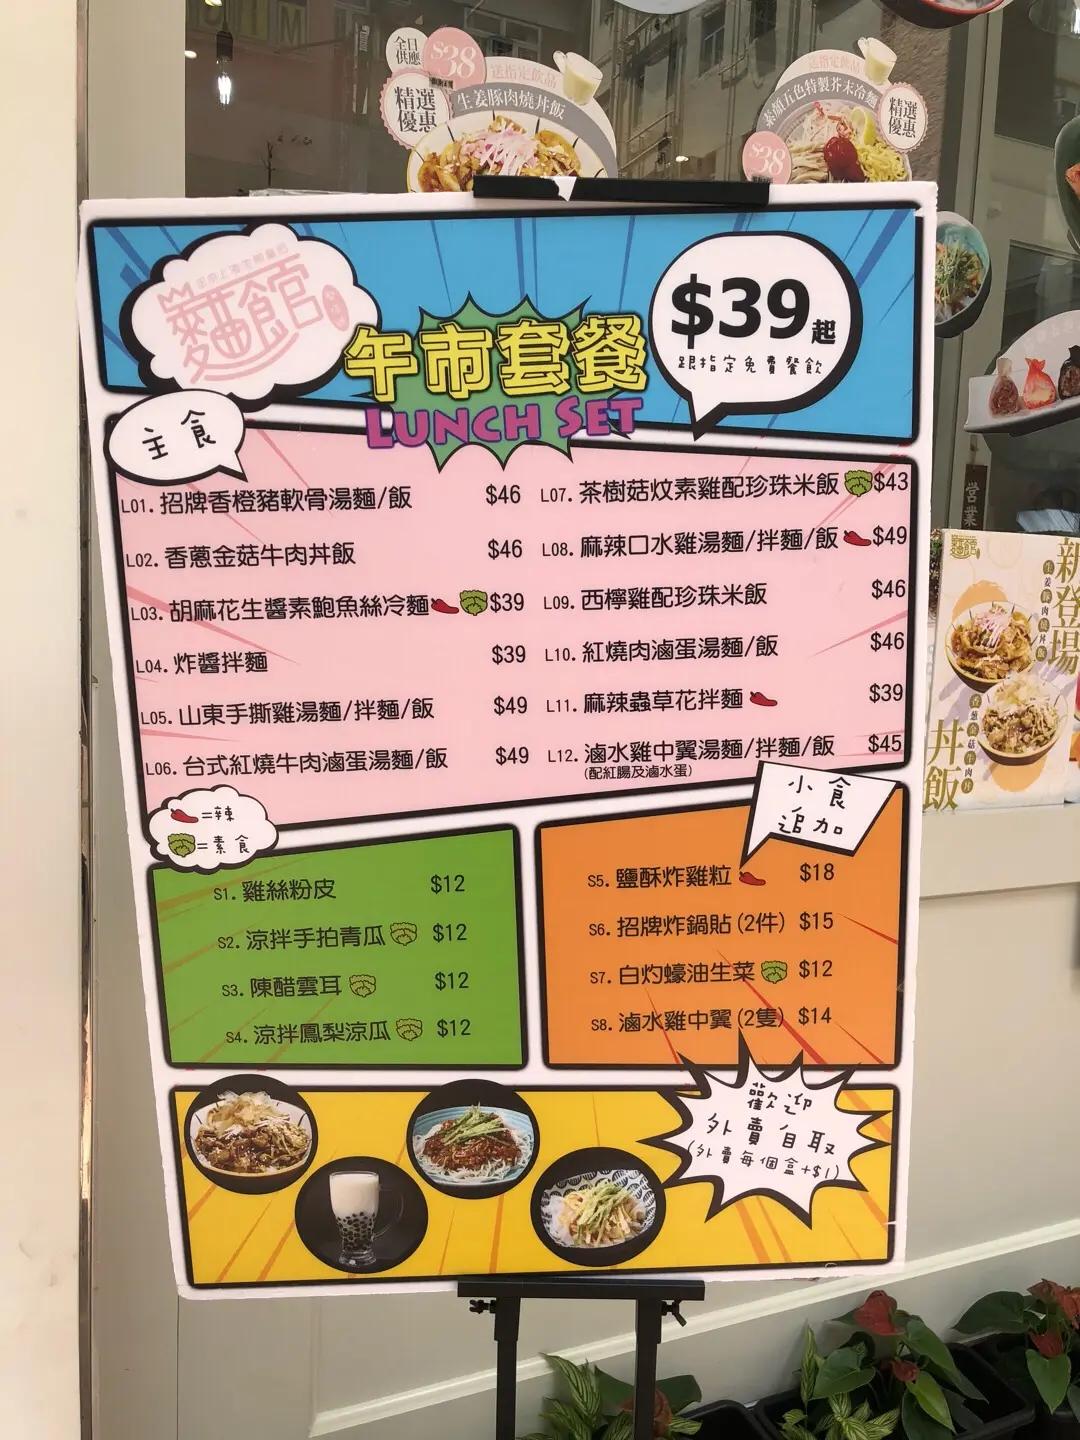 全日
供應
$38
精選
優惠
送指定飲品
生姜豚肉燒丼飯
送指定飲品
素顏五色特製芥末冷麵
精選
優惠
$38
麵館
午市套餐
LUNCH SET
$39起
跟指定免費餐飲
主食
L01. 招牌香橙豬軟骨湯麵/飯 $46
L02. 香蔥金菇牛肉丼飯 $46
L03. 胡麻花生醬素鮑魚絲冷麵 $39
L04. 炸醬拌麵 $39
L05. 山東手撕雞湯麵/拌麵/飯 $49
L06. 台式紅燒牛肉滷蛋湯麵/飯 $49
L07. 茶樹菇炆素雞配珍珠米飯 $43
L08. 麻辣口水雞湯麵/拌麵/飯 $49
L09. 西檸雞配珍珠米飯 $46
L10. 紅燒肉滷蛋湯麵/飯 $46
L11. 麻辣蟲草花拌麵 $39
L12. 滷水雞中翼湯麵/拌麵/飯 $45
(配紅腸及滷水蛋)
=辣
=素食
小食
追加
S1. 雞絲粉皮 $12
S2. 涼拌手拍青瓜 $12
S3. 陳醋雲耳 $12
S4. 涼拌鳳梨涼瓜 $12
S5. 鹽酥炸雞粒 $18
S6. 招牌炸鍋貼 (2件) $15
S7. 白灼蠔油生菜 $12
S8. 滷水雞中翼 (2隻) $14
歡迎
外賣自取
(外賣每個盒+$1)
営業
麵館
新登場
生姜豚肉燒丼飯
香蔥金菇牛肉丼
丼飯